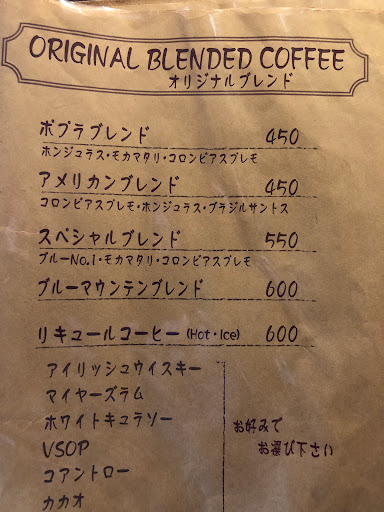 ORIGINAL BLENDED COFFEE
オリジナルブレンド
ポプラブレンド 450
ホンジュラス・モカマタリ・コロンビアスプレモ
アメリカンブレンド 450
コロンビアスプレモ・ホンジュラス・ブラジルサントス
スペシャルブレンド 550
ブルーNo.1・モカマタリ・コロンビアスプレモ
ブルーマウンテンブレンド 600
リキュールコーヒー (Hot・Ice) 600
アイリッシュウイスキー
マイヤーズラム
ホワイトキュラソー
VSOP
コアントロー
カカオ
お好みで
お選び下さい